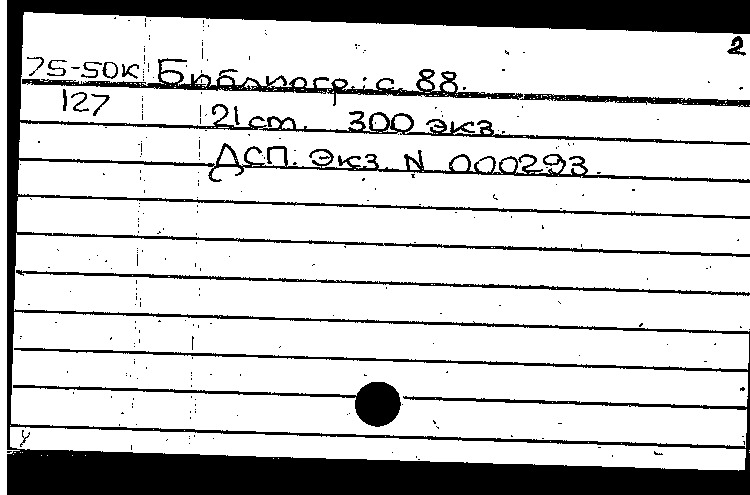 2
75-50к Библиогр.: с. 88.
127 21 cm. 300 экз.
ДСП. Экз. N 000293.